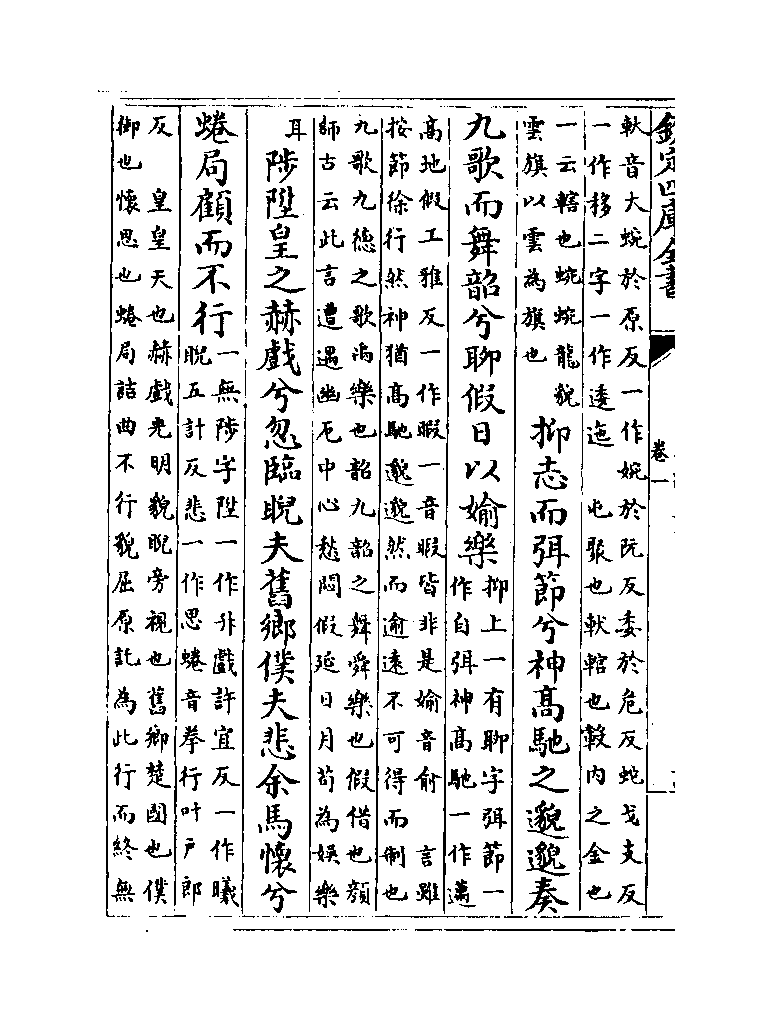 欽定四庫全書
卷一
軑音大蜿於原反一作婉於阮反委於危反蛇弋支反
一作移二字一作逶迤　屯聚也軑輨也轂内之金也
一云轄也蜿蜿龍貌
雲旗以雲為旗也
抑志而弭節兮神髙馳之邈邈奏
九歌而舞韶兮聊假日以媮樂
抑上一有聊字弭節一
作自弭神髙馳一作邁
髙地假工雅反一作暇一音暇皆非是媮音俞　言雖
按節徐行然神猶髙馳邈邈然而逾逺不可得而制也
九歌九德之歌禹樂也韶九韶之舞舜樂也假借也顔
師古云此言遭遇幽厄中心愁悶假延日月苟為娯樂
耳
陟陞皇之赫戲兮忽臨睨夫舊鄉僕夫悲余馬懷兮
蜷局顧而不行
一無陟字陞一作升戲許宜反一作曦
睨五計反悲一作思蜷音拳行叶戸郎
反　皇皇天也赫戲光明貌睨旁視也舊鄉楚國也僕
御也懷思也蜷局詰曲不行貌屈原託為此行而終無